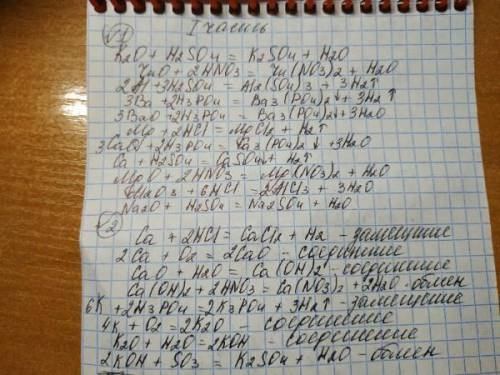 I часть
№1
K2O + H2SO4 = K2SO4 + H2O
ZnO + 2HNO3 = Zn(NO3)2 + H2O
2Al + 3H2SO4 = Al2(SO4)3 + 3H2↑
3Ba + 2H3PO4 = Ba3(PO4)2↓ + 3H2↑
3BaO + 2H3PO4 = Ba3(PO4)2↓ + 3H2O
Mg + 2HCl = MgCl2 + H2↑
3CaO + 2H3PO4 = Ca3(PO4)2↓ + 3H2O
Ca + H2SO4 = CaSO4↓ + H2↑
MgO + 2HNO3 = Mg(NO3)2 + H2O
Al2O3 + 6HCl = 2AlCl3 + 3H2O
Na2O + H2SO4 = Na2SO4 + H2O
№2
Ca + 2HCl = CaCl2 + H2 - замещение
2Ca + O2 = 2CaO - соединение
CaO + H2O = Ca(OH)2 - соединение
Ca(OH)2 + 2HNO3 = Ca(NO3)2 + 2H2O - обмен
6K + 2H3PO4 = 2K3PO4 + 3H2↑ - замещение
4K + O2 = 2K2O - соединение
K2O + H2O = 2KOH - соединение
2KOH + SO3 = K2SO4 + H2O - обмен